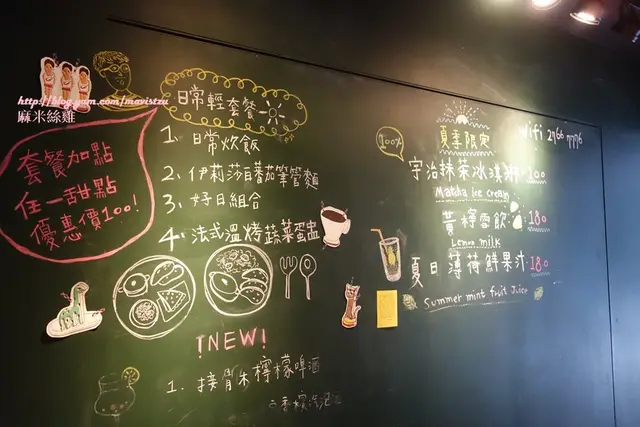 http://blog.yam.com/mavistzu
麻米絲雞
套餐加點
任一甜點
優惠價100!
日常輕套餐
1. 日常炊飯
2. 伊莉莎白蕃茄筆管麵
3. 好日組合
4. 法式溫烤蔬菜蛋盅
!NEW!
1. 接骨木檸檬啤酒
100%
夏季限定
wifi 2966 7776
宇治抹茶冰淇淋 100
Matcha ice cream
黃檸雪飲 180
Lemon milk
夏日薄荷鮮果汁 180
Summer mint fruit Juice